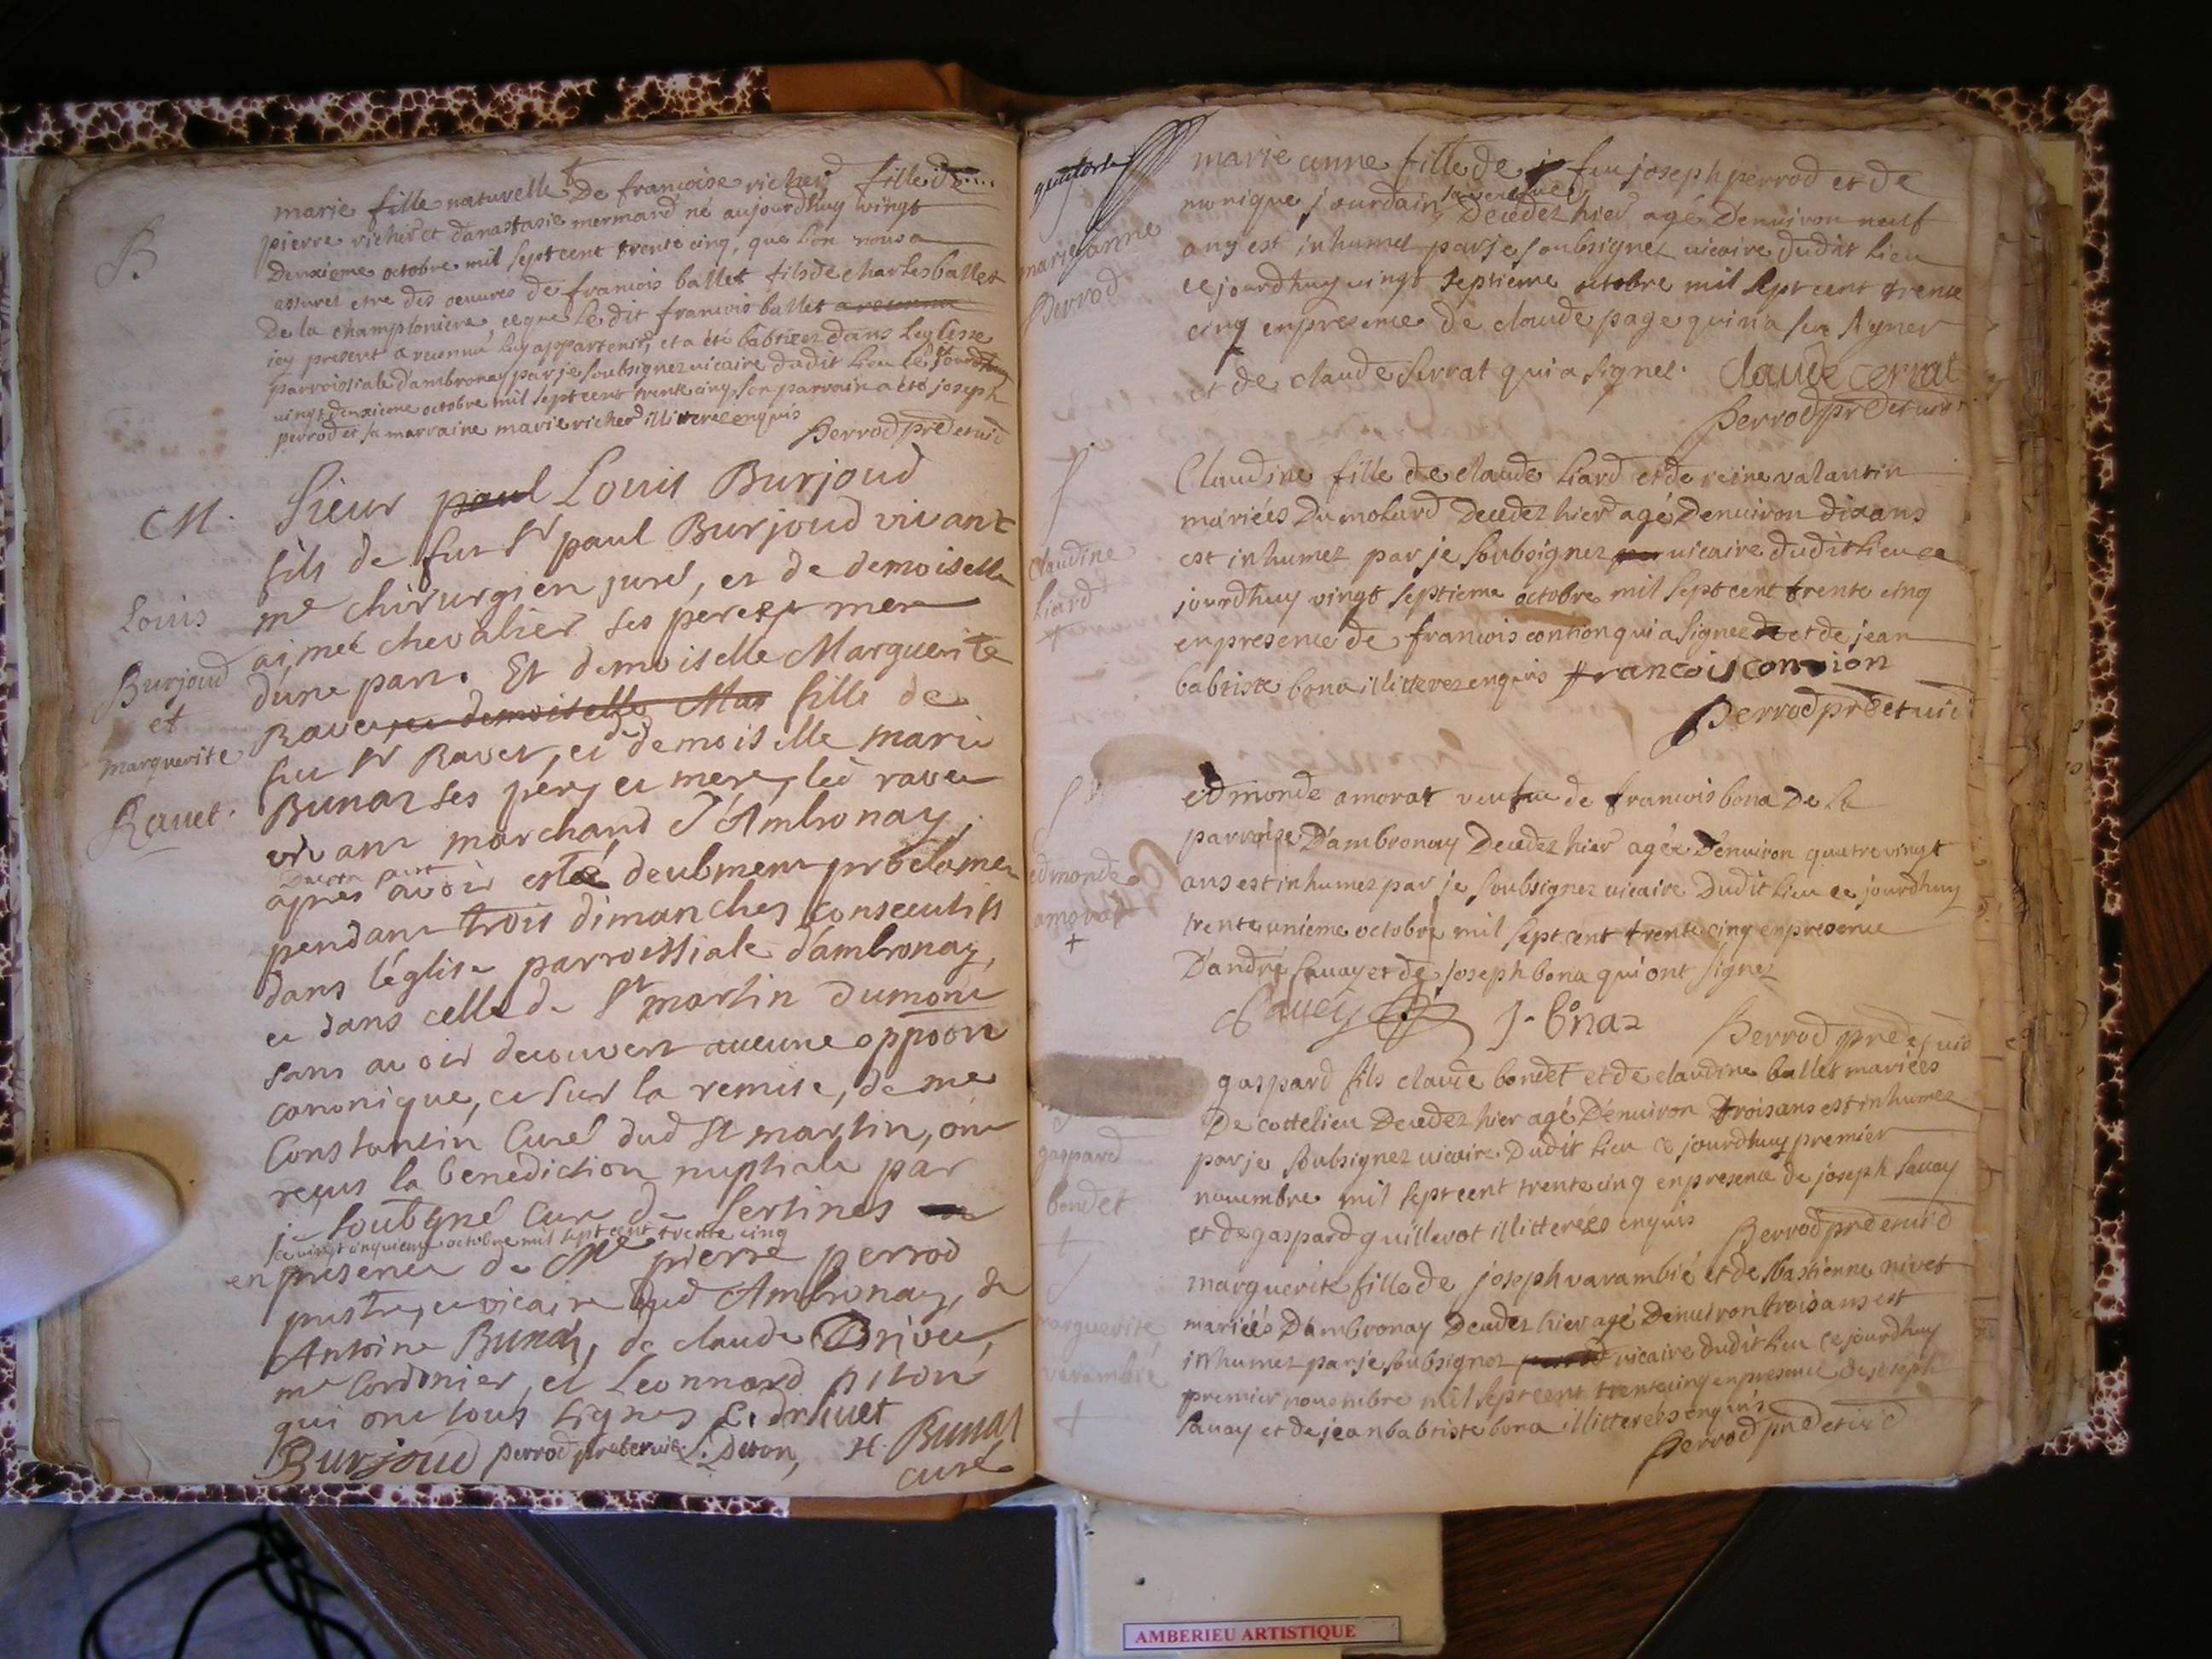 B
marie fille naturelle De francoise richer fille de
pierre richer et danastasie mermard né aujourdhuy vingt
deuxieme octobre mil sept cent trente cinq, que l'on nous a
assurez etre des oeuvres de francois ballet fils de charles ballet
De la champloniere, ce que le dit francois ballet
icy present a reconnu luy appartenir, et a été babtisez dans leglise
parroissiale dambronay par je soubsignez vicaire dudit lieu ce jourdhuy
vingt deuxieme octobre mil sept cent trente cinq, son parrain a été joseph
perrod et sa marraine marie richer illitterez enquis
Perrod pre et vic
M.
Louis
Burjoud
et
marguerite
Ravet.
Sieur paul Louis Burjoud
fils de feu Sr paul Burjoud vivant
me chirurgien juré, et de demoiselle
aimeé chevalier ses pere et mere
d'une part. Et demoiselle Marguerite
Ravet et demoiselle Mar fille de
feu Sr Ravet, et de demoiselle marie
Bunaz ses pere et mere, led ravet
vivant marchand d'Ambronay,
apres avoir esté deubment proclamez
pendant trois dimanches consecutifs
dans l'église parroissiale d'ambronay,
et dans celle de St martin dumont
sans avoir decouvert aucune oppoon
canonique, et sur la remise, de me
Constantin Curé dud St martin, ont
reçus la benediction nuptiale par
je soubsigné Curé de Sertines
ce vingt cinquieme octobre mil sept cent trente cinq
en presence de Mre pierre perrod
prestre, et vicaire dud Ambronay, de
Antoine Bunaz, de claude Drivet,
me Cordonier, et Leonnard piton
qui ont tous signes C. drivet
Burjoud perrod pre et vic L. Diton, H. Bunaz
curé
marie anne
Perrod
marie anne fille de feu joseph perrod et de
monique jourdain sa veufve Decedez hier agé Denviron neuf
ans est inhumez par je soubsignez vicaire dudit lieu
ce jourdhuy vingt septieme octobre mil sept cent trente
cinq en presence de claude page qui n'a sceu signer
et de claude serrat qui a signez. Claude cerrat
Perrod pre et vic
claudine
liard
+
Claudine fille de claude liard et de reine valantin
mariées Du molard Decedez hier agé Denviron dix ans
est inhumez par je soubsignez vicaire dudit lieu ce
jourdhuy vingt septieme octobre mil sept cent trente cinq
en presence de francois contion qui a signez et de jean
babtiste bona illitterez enquis francois contion
Perrod pre et vic
edmonde
amorat
+
edmonde amorat veufue de francois bona De la
parroise D'ambronay Decedez hier agée Denviron quatre vingt
ans est inhumez par je soubsignez vicaire Dudit lieu ce jourdhuy
trente unieme octobre mil sept cent trente cinq en presence
D'andre savay et de joseph bona qui ont signez
Savey J. Bonaz
Perrod pre et vic
gaspard
bondet
+
gaspard fils claude bondet et de claudine ballet mariées
De cottelieu Decedez hier agé Denviron trois ans est inhumez
par je soubsignez vicaire Dudit lieu ce jourdhuy premier
novembre mil sept cent trente cinq en presence de joseph savay
et de gaspard quillerot illitterées enquis Perrod pre et vic
marguerite
varambié
+
marguerite fille de joseph varambié et de sbastienne nivet
mariéés Dambronay Decedez hier agé Denviron trois ans est
inhumez par je soubsignez vicaire dudit lieu ce jourdhuy
premier novembre mil sept cent trente cinq en presence de joseph
savay et de jean babtiste bona illitterées enquis
Perrod pre et vic
AMBERIEU ARTISTIQUE